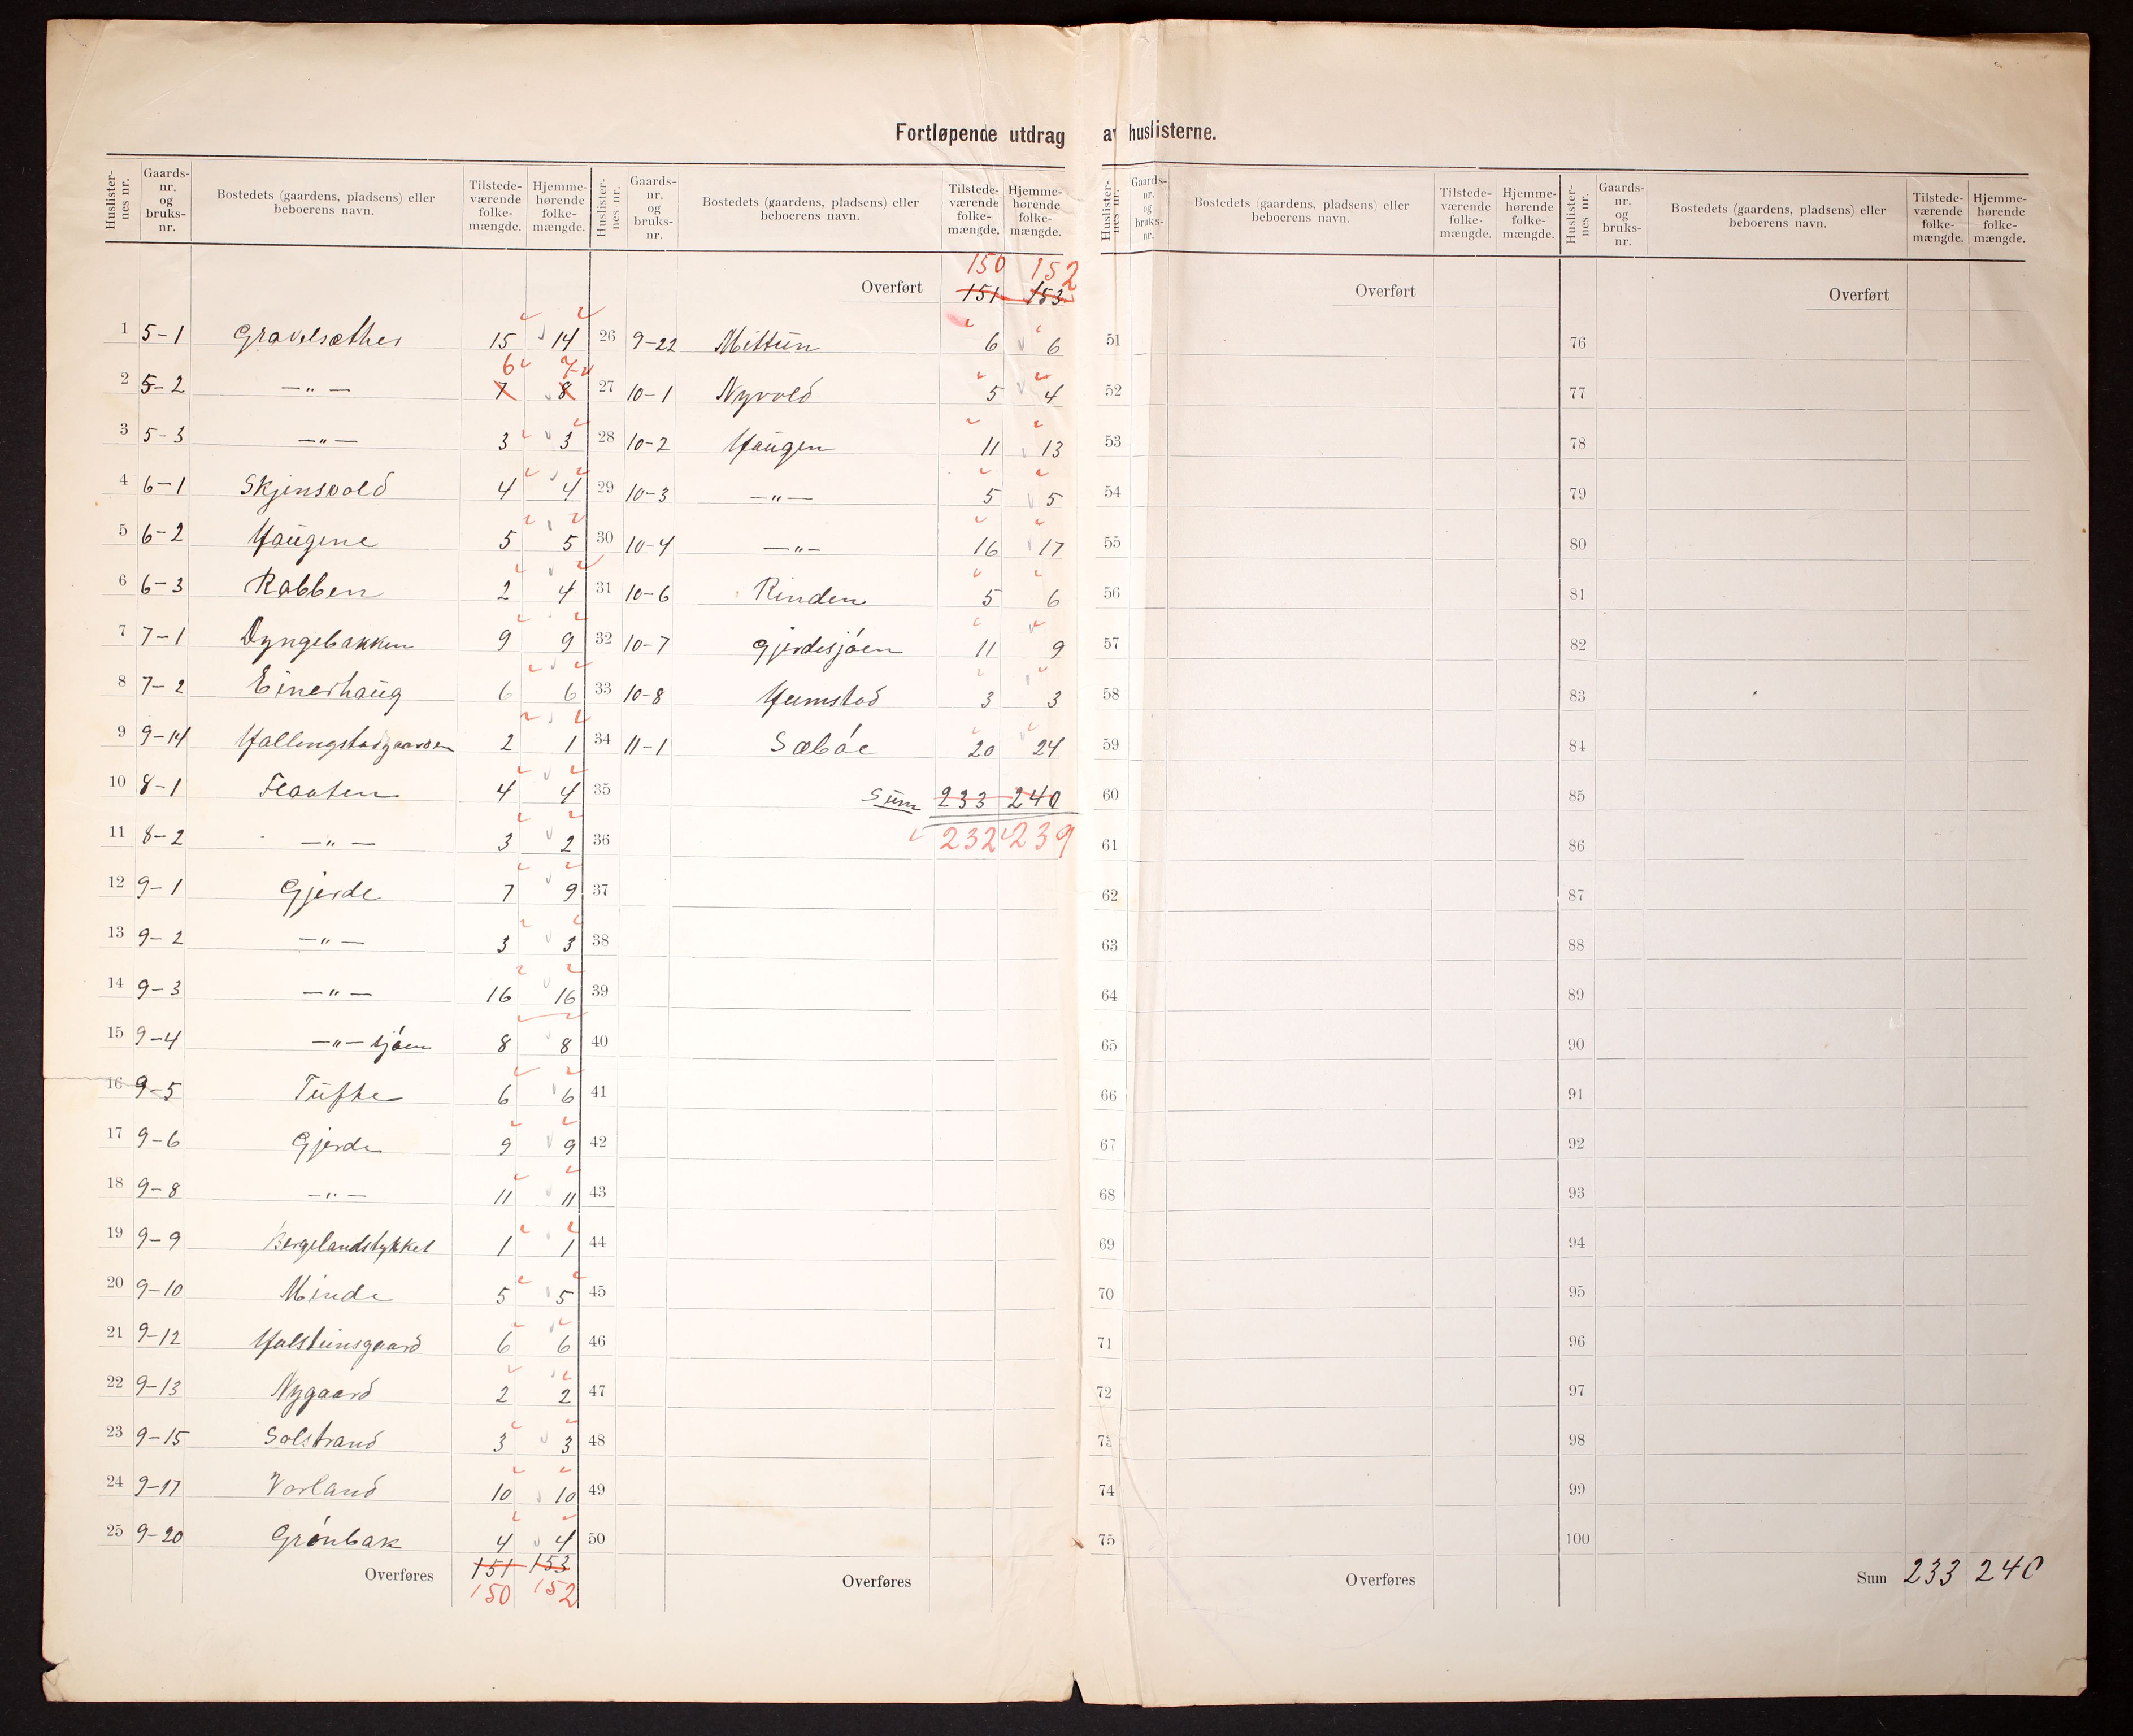 Fortløpende utdrag av huslisterne.
Huslister-nes nr. Gaards-nr. og bruks-nr. Bostedets (gaardens, pladsens) eller beboerens navn. Tilstede-værende folke-mængde. Hjemme-hørende folke-mængde.
1 5-1 Gravelsæther 15 14
6 7
2 5-2 —"— 7 8
3 5-3 —"— 3 3
4 6-1 Skjensvold 4 4
5 6-2 Haugene 5 5
6 6-3 Rabben 2 4
7 7-1 Dyngebakken 9 9
8 7-2 Einerhaug 6 6
9 9-14 Hallingstadgaarden 2 1
10 8-1 Flaaten 4 4
11 8-2 —"— 3 2
12 9-1 Gjerde 7 9
13 9-2 —"— 3 3
14 9-3 —"— 16 16
15 9-4 —"— sjöen 8 8
16 9-5 Tufte 6 6
17 9-6 Gjerde 9 9
18 9-8 —"— 11 11
19 9-9 Bergelandstykket 1 1
20 9-10 Minde 5 5
21 9-12 Halsteinsgaard 6 6
22 9-13 Nygaard 2 2
23 9-15 Solstrand 3 3
24 9-17 Vorland 10 10
25 9-20 Grönbak 4 4
Overføres 151 153
150 152
Huslister-nes nr. Gaards-nr. og bruks-nr. Bostedets (gaardens, pladsens) eller beboerens navn. Tilstede-værende folke-mængde. Hjemme-hørende folke-mængde.
150 152
Overført 151 153
26 9-22 Mittun 6 6
27 10-1 Nyvold 5 4
28 10-2 Haugen 11 13
29 10-3 —"— 5 5
30 10-4 —"— 16 17
31 10-6 Rinden 5 6
32 10-7 Gjerdesjöen 11 9
33 10-8 Humstad 3 3
34 11-1 Sæböe 20 24
35 Sum 233 240
36 232 239
37
38
39
40
41
42
43
44
45
46
47
48
49
50
Overføres
Huslister-nes nr. Gaards-nr. og bruks-nr. Bostedets (gaardens, pladsens) eller beboerens navn. Tilstede-værende folke-mængde. Hjemme-hørende folke-mængde.
Overført
51
52
53
54
55
56
57
58
59
60
61
62
63
64
65
66
67
68
69
70
71
72
73
74
75
Overføres
Huslister-nes nr. Gaards-nr. og bruks-nr. Bostedets (gaardens, pladsens) eller beboerens navn. Tilstede-værende folke-mængde. Hjemme-hørende folke-mængde.
Overført
76
77
78
79
80
81
82
83
84
85
86
87
88
89
90
91
92
93
94
95
96
97
98
99
100
Sum 233 240